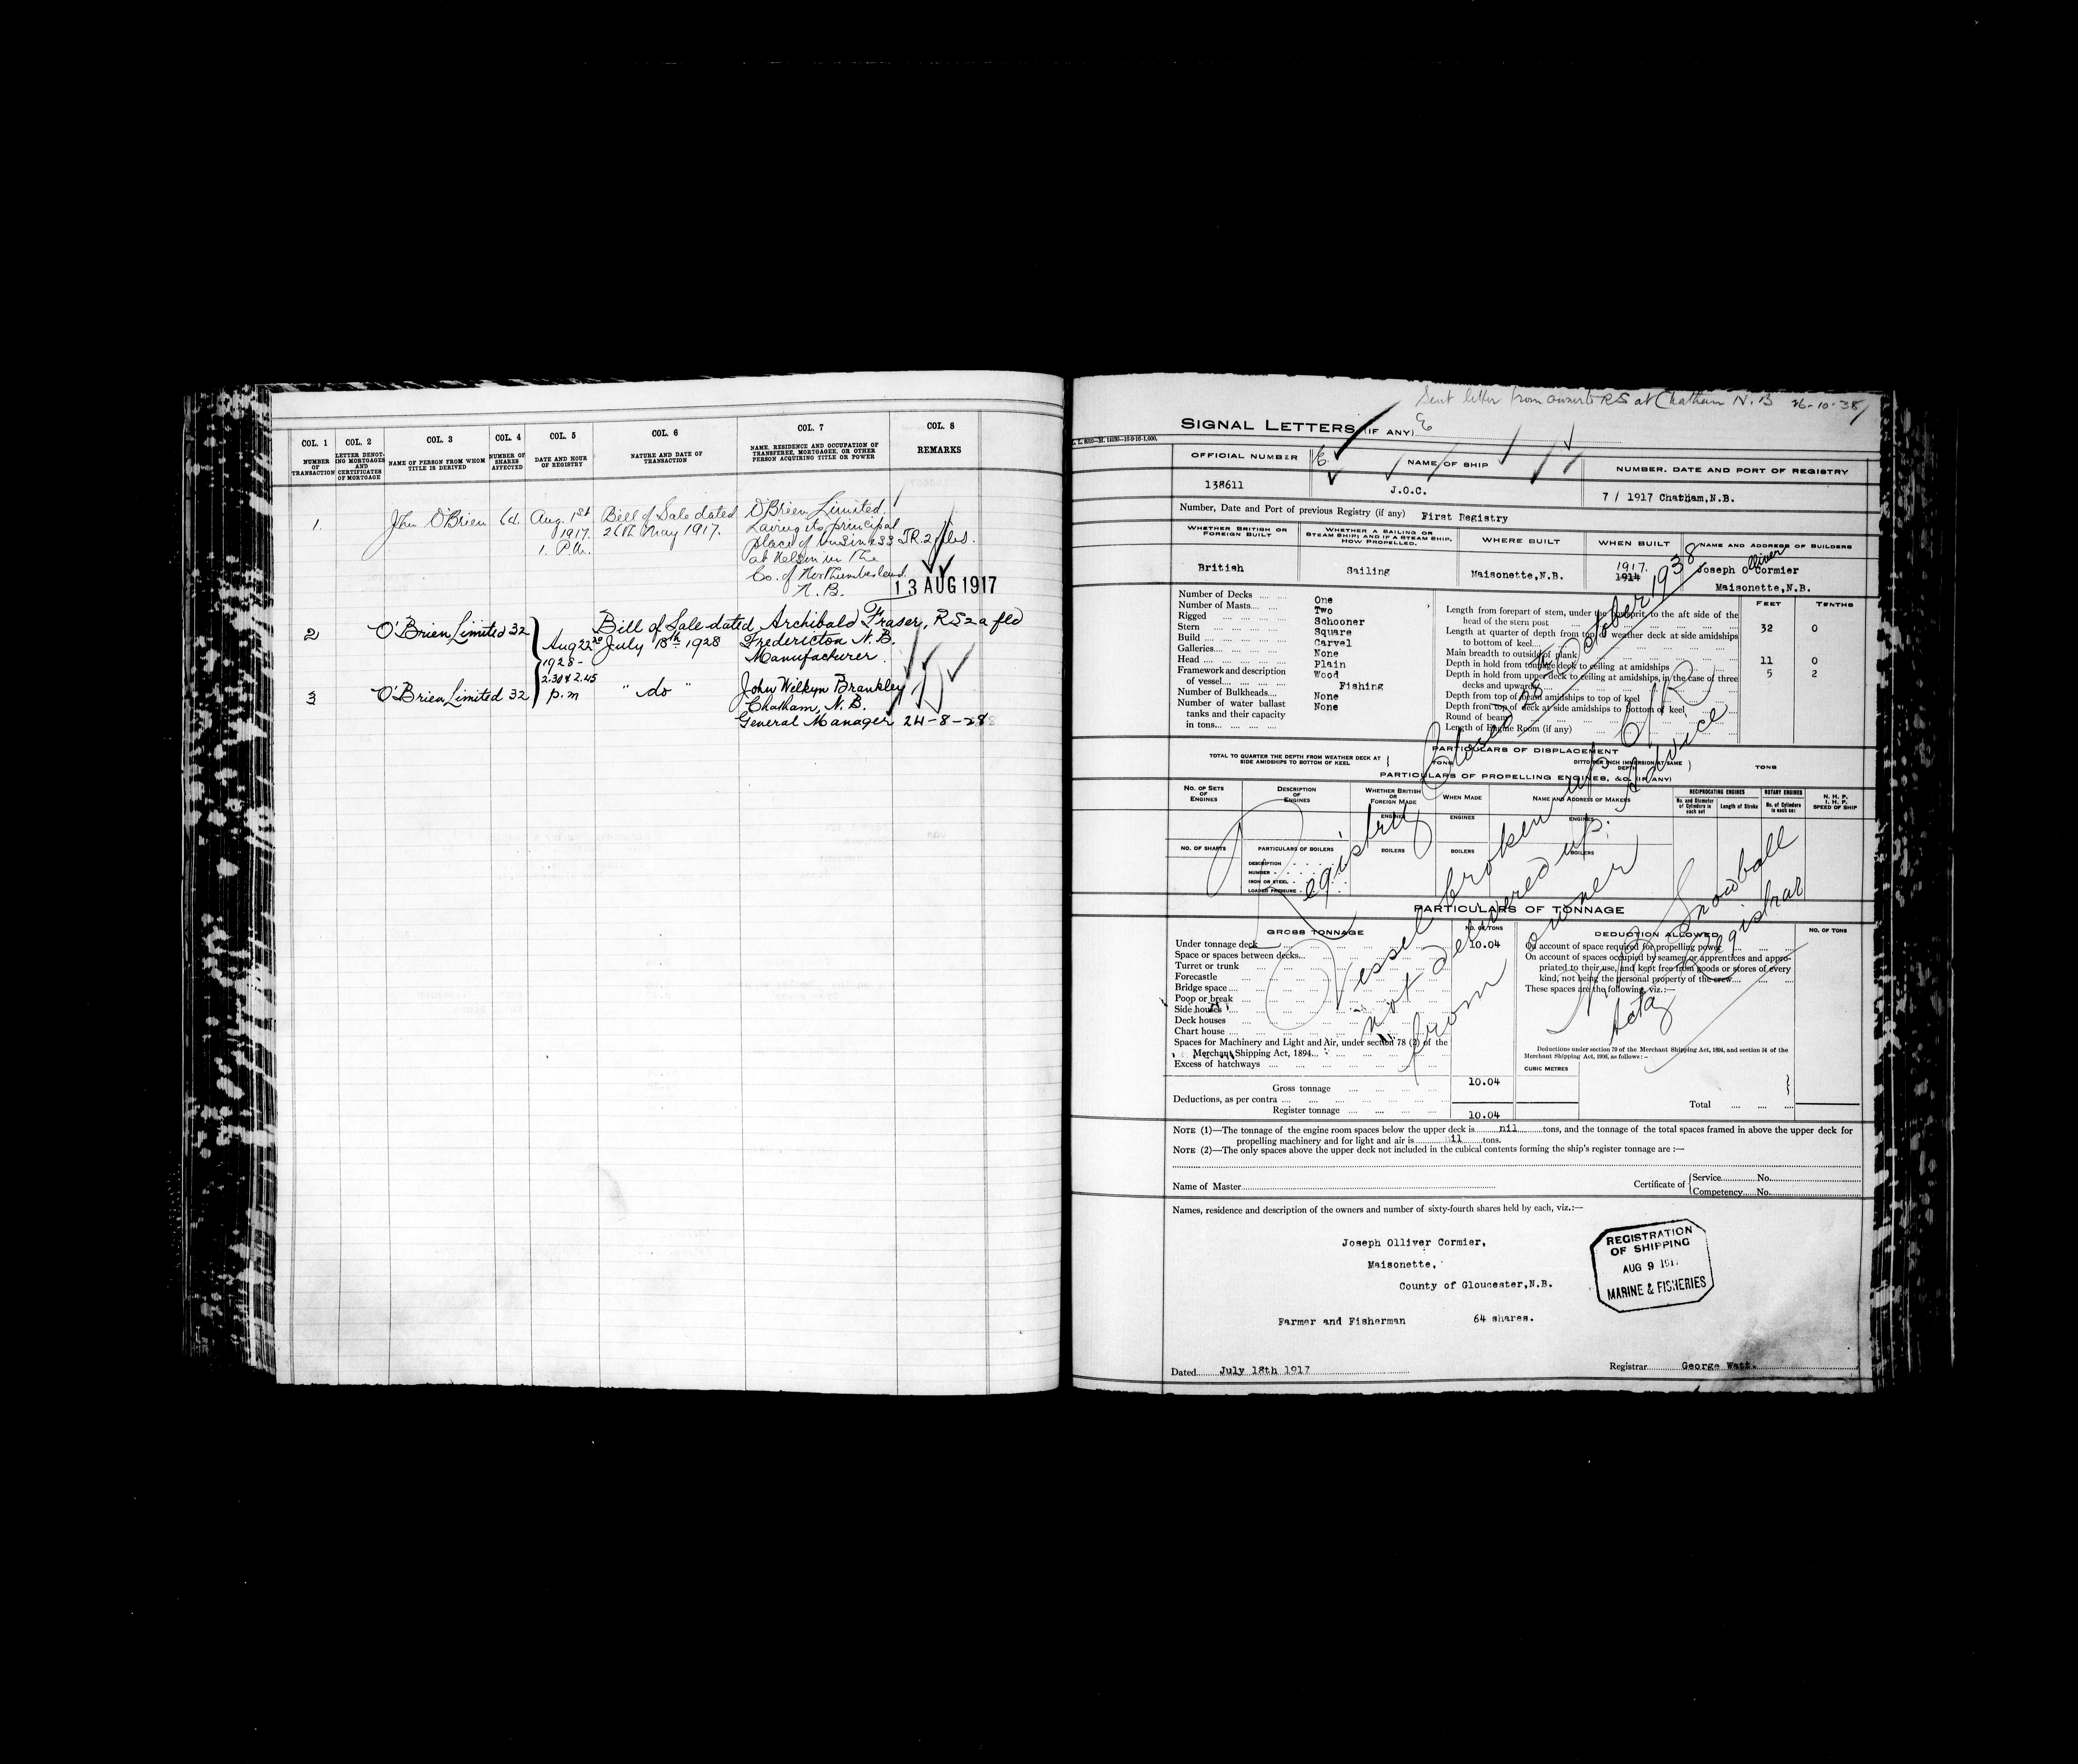 COL. 1
NUMBER OF TRANSACTION
COL. 2
LETTER DENOTING MORTGAGES AND CERTIFICATES OF MORTGAGE
COL. 3
NAME OF PERSON FROM WHOM TITLE IS DERIVED
COL. 4
NUMBER OF SHARES AFFECTED
COL. 5
DATE AND HOUR OF REGISTRY
COL. 6
NATURE AND DATE OF TRANSACTION
COL. 7
NAME, RESIDENCE AND OCCUPATION OF TRANSFEREE, MORTGAGEE, OR OTHER PERSON ACQUIRING TITLE OR POWER
COL. 8
REMARKS
1. John O'Brien 64 Aug. 1st Bill of Sale dated O'Brien Limited.
1917. 26th May 1917. having its principal
1. P.M. place of business
at Nelson in the
Co. of Northumberland.
N.B.
13 AUG 1917
2 O'Brien Limited 32 Bill of Sale dated Archibald Fraser, RS2a fld
Aug 22nd July 18th 1928 Fredericton N.B.
1928- Manufacturer.
2.30 & 2.45
3 O'Brien Limited 32 p.m " do " John Wilkyn Brankley
Chatham, N.B.
General Manager 24-8-28
Sent letter from owner to RS at Chatham N.B 26-10-38
SIGNAL LETTERS (IF ANY)
OFFICIAL NUMBER NAME OF SHIP NUMBER, DATE AND PORT OF REGISTRY
138611 J.O.C. 7 / 1917 Chatham,N.B.
Number, Date and Port of previous Registry (if any) First Registry
WHETHER BRITISH OR FOREIGN BUILT
WHETHER A SAILING OR STEAM SHIP; AND IF A STEAM SHIP, HOW PROPELLED.
WHERE BUILT
WHEN BUILT
NAME AND ADDRESS OF BUILDERS
British Sailing Maisonette,N.B. 1917. 1914 Joseph Olliver Cormier
Maisonette,N.B.
Number of Decks One
Number of Masts Two
Rigged Schooner
Stern Square
Build Carvel
Galleries None
Head Plain
Framework and description of vessel Wood
Fishing
Number of Bulkheads None
Number of water ballast tanks and their capacity in tons None
FEET TENTHS
Length from forepart of stem, under the bowsprit, to the aft side of the head of the stern post 32 0
Length at quarter of depth from top of weather deck at side amidships to bottom of keel
Main breadth to outside of plank 11 0
Depth in hold from tonnage deck to ceiling at amidships 5 2
Depth in hold from upper deck to ceiling at amidships, in the case of three decks and upwards
Depth from top of beam amidships to top of keel
Depth from top of deck at side amidships to bottom of keel
Round of beam
Length of Engine Room (if any)
PARTICULARS OF DISPLACEMENT
TOTAL TO QUARTER THE DEPTH FROM WEATHER DECK AT SIDE AMIDSHIPS TO BOTTOM OF KEEL TONS DITTO PER INCH IMMERSION AT SAME DEPTH TONS
PARTICULARS OF PROPELLING ENGINES, &C. (IF ANY)
NO. OF SETS OF ENGINES
DESCRIPTION OF ENGINES
WHETHER BRITISH OR FOREIGN MADE
WHEN MADE
NAME AND ADDRESS OF MAKERS
RECIPROCATING ENGINES
No. and Diameter of Cylinders in each set
Length of Stroke
ROTARY ENGINES
No. of Cylinders in each set
N. H. P.
I. H. P.
SPEED OF SHIP
ENGINES ENGINES ENGINES
NO. OF SHAFTS PARTICULARS OF BOILERS BOILERS BOILERS BOILERS
DESCRIPTION
NUMBER
IRON OR STEEL
LOADED PRESSURE
Registry Closed 28th October 1938
Vessel broken up. C/R
not delivered up. Advice
from owner
Snowball
Actg Registrar
PARTICULARS OF TONNAGE
GROSS TONNAGE NO. OF TONS
Under tonnage deck 10.04
Space or spaces between decks
Turret or trunk
Forecastle
Bridge space
Poop or break
Side houses
Deck houses
Chart house
Spaces for Machinery and Light and Air, under section 78 (2) of the Merchant Shipping Act, 1894
Excess of hatchways
Gross tonnage 10.04
Deductions, as per contra
Register tonnage 10.04
DEDUCTION ALLOWED NO. OF TONS
On account of space required for propelling power
On account of spaces occupied by seamen or apprentices and appropriated to their use, and kept free from goods or stores of every kind, not being the personal property of the crew
These spaces are the following, viz.:—
Deductions under section 79 of the Merchant Shipping Act, 1894, and section 54 of the Merchant Shipping Act, 1906, as follows:—
CUBIC METRES
Total
NOTE (1)—The tonnage of the engine room spaces below the upper deck is nil tons, and the tonnage of the total spaces framed in above the upper deck for
propelling machinery and for light and air is nil tons.
NOTE (2)—The only spaces above the upper deck not included in the cubical contents forming the ship's register tonnage are :—
Name of Master Certificate of Service No.
Competency No.
Names, residence and description of the owners and number of sixty-fourth shares held by each, viz.:—
Joseph Olliver Cormier,
Maisonette,
County of Gloucester,N.B.
Farmer and Fisherman 64 shares.
REGISTRATION
OF SHIPPING
AUG 9 191
MARINE & FISHERIES
Dated July 18th 1917 Registrar George Watt.